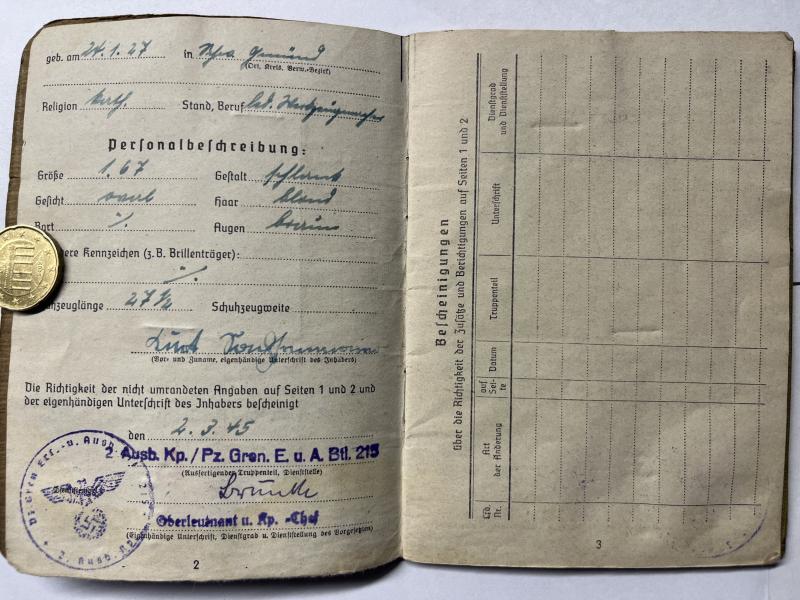 geb. am 24.1.27 in Gmünd
(Ort, Kreis, Verw.-Bezirk)
Religion kath. Stand, Beruf led.
Personalbeschreibung:
Größe 1.67 Gestalt schlank
Gesicht oval Haar blond
Bart ./. Augen braun
ere Kennzeichen (z. B. Brillenträger):
./.
zeuglänge 27½ Schuhzeugweite
Kurt
(Vor- und Zuname, eigenhändige Unterschrift des Inhabers)
Die Richtigkeit der nicht umrandeten Angaben auf Seiten 1 und 2 und
der eigenhändigen Unterschrift des Inhabers bescheinigt
den 2.3.45
2 Ausb. Kp. / Pz. Gren. E. u. A. Btl. 215
(Ausfertigender Truppenteil, Dienststelle)
Oberleutnant u. Kp. -Chef
(Eigenhändige Unterschrift, Dienstgrad u. Dienststellung des Vorgesetzten)
2
Bescheinigungen
über die Richtigkeit der Zusätze und Berichtigungen auf Seiten 1 und 2
Lfd. Nr.
Art der Änderung
auf Sei- te
Datum
Truppenteil
Unterschrift
Dienstgrad und Dienststellung
3